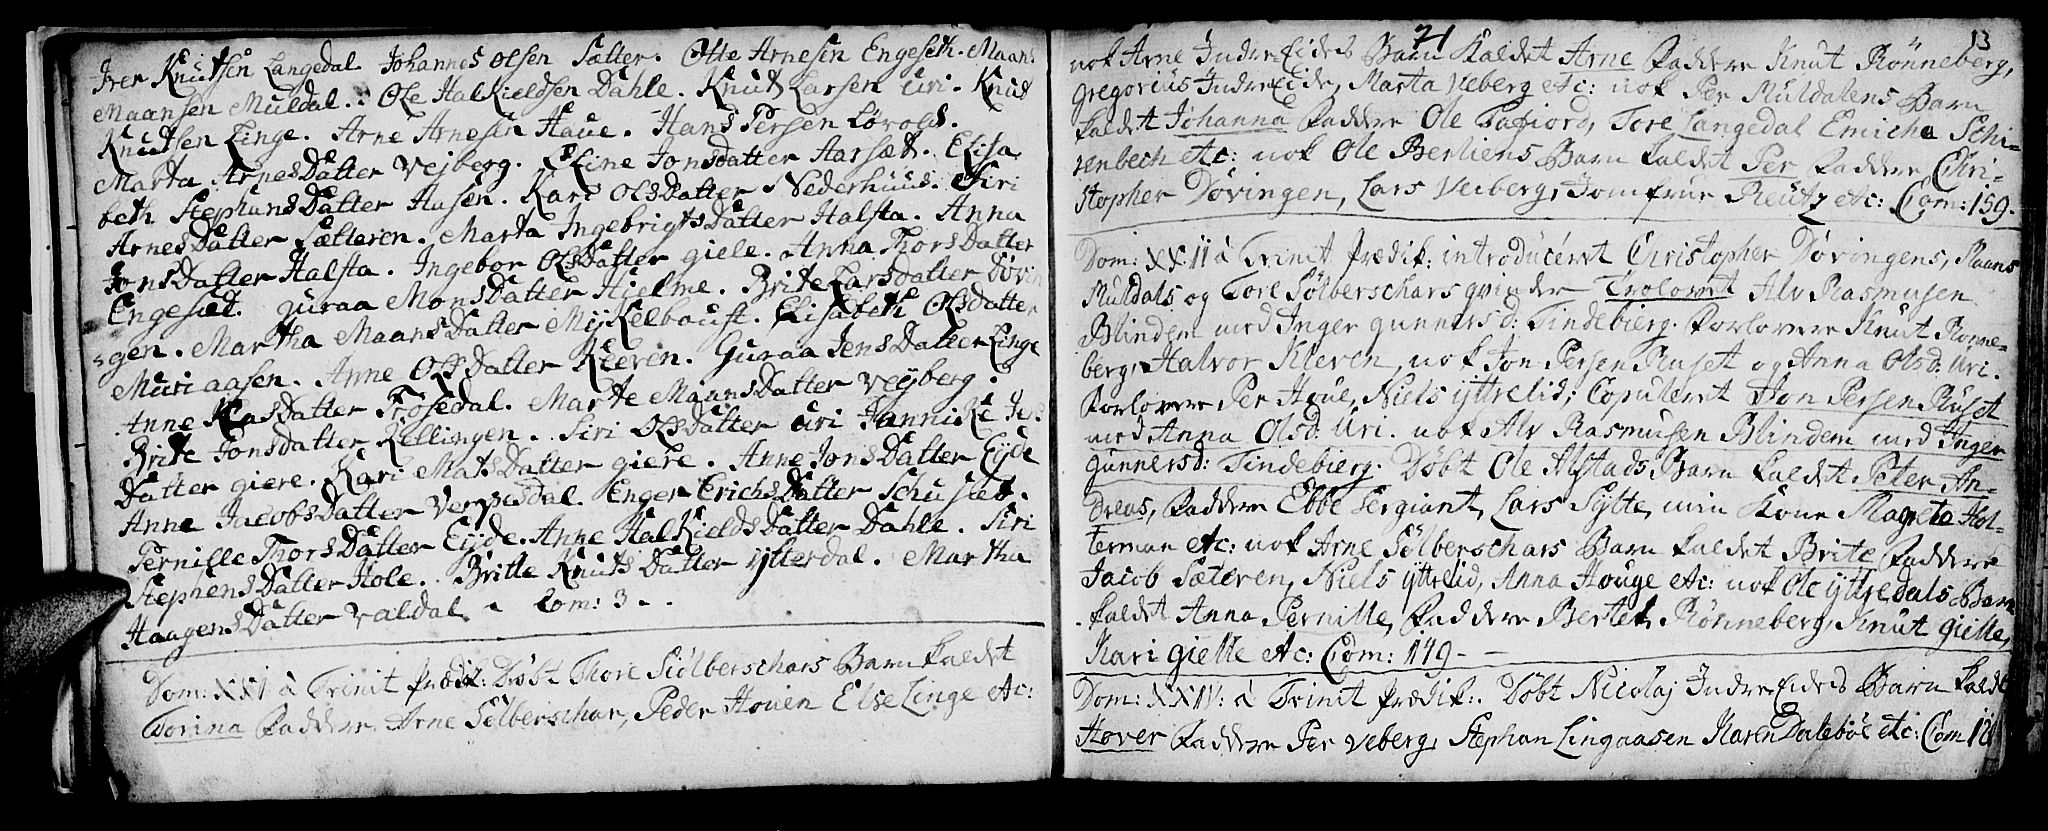 Iver Knutsen Langedal Johannes Olsen Sætter. Otte Arnesen Engeseth. Maans
Maansen Muldal. Ole Halkieldsen Dahle. Knut Larsen Uri. Knut
Knutsen Linge. Arne Arnesen Haue. Hans Persen Lovold.
Marta ArnesDatter Vejberg. Eline Jonsdatter Aarsæt. Elisa
beth StephansDatter Husen. Kari OlsDatter Nederhuus. Siri
ArnesDatter Sætteren. Marta IngebrigtsDatter Halsta. Anna
JonsDatter Halsta. Ingebor OlsDatter giele. Anna ThorsDatter
Engeset. guraa MonsDatter Hielme. Brite Larsdatter Dövin
gen. Martha MaansDatter Mykelboust. Elisabeth Olsdatter
Muriaasen. Anne OlsDatter Kleven. Guraa JensDatter Linge
Anne KlasDatter Frösedal. Marte MaansDatter Vejberg.
Brite Jonsdatter Kellingen. Siri OlsDatter Uri Hannike
Datter giere. Kari MatsDatter giere. Anne JonsDatter Eyde
Anne JacobsDatter Verpesdal. Enger ErichsDatter Schusted.
Pernille ThorsDatter Eyde. Anne HalkieldsDatter Dahle. Siri
StephensDatter Hole. Britte KnutsDatter ytterdal. Martha
HaagensDatter Valdal. Com: 3
Dom: XXI à Trinit prædik: Döbt Thore Siölberschars Barn kaldet
Torina Faddere Arne Sölberschar, Peder Hoven Else Linge etc:
71 13
nok Arne IndreEides Barn kaldet Arne Faddere Knut Rönneberg,
gregorius IndreEide, Marta Veberg etc: nok Per Muldalens Barn
kaldet Johanna Faddere Ole Tafiord, Tore Langedal Emicha Schi-
renbech etc: nok Ole Berliens Barn kaldet Per Faddere Chri-
stopher Dövingen, Lars Veiberg, Jomfrue Reutz etc: Com: 159.
Dom: XXII à Trinit prædik: introduceret Christopher Dövingens, Maans
Muldals og Tore Sölberschars qvinder Trolovet Alv Rasmusen
Blindem med Inger gunnersd: Tindebierg. Forlovere Knut Rönne-
berg, Halvor Kleven, nok Jon Persen Ruset og Anna Olsd: Uri.
Forlovere Per Houe, Niels Yttrelid; Copuleret Jon Persen Ruset
med Anna Olsd: Uri. nok Alv Rasmusen Blindem med Inger
gunnersd: Tindebierg. Döbt Ole Alstads Barn kaldet Peter An-
dreas, Faddere Ebbe Sergiant, Lars Sylte, min Kone Magreta Hol-
terman etc: nok Arne Sölberschars Barn kaldet Brite Faddere
Jacob Sæteren, Niels Yttrelid, Anna Houge etc: nok Ole Yttredals Barn
kaldet Anna Pernille, Faddere Bertel Rönneberg, Knut gielle,
Kari gielle etc: Com: 119-
Dom: XXIV: à Trinit prædik: Döbt Nicolaj IndreEides Barn kaldt
Hover Faddere Per Veberg, Stephan Lingaasen Karen Daleböe etc: Com